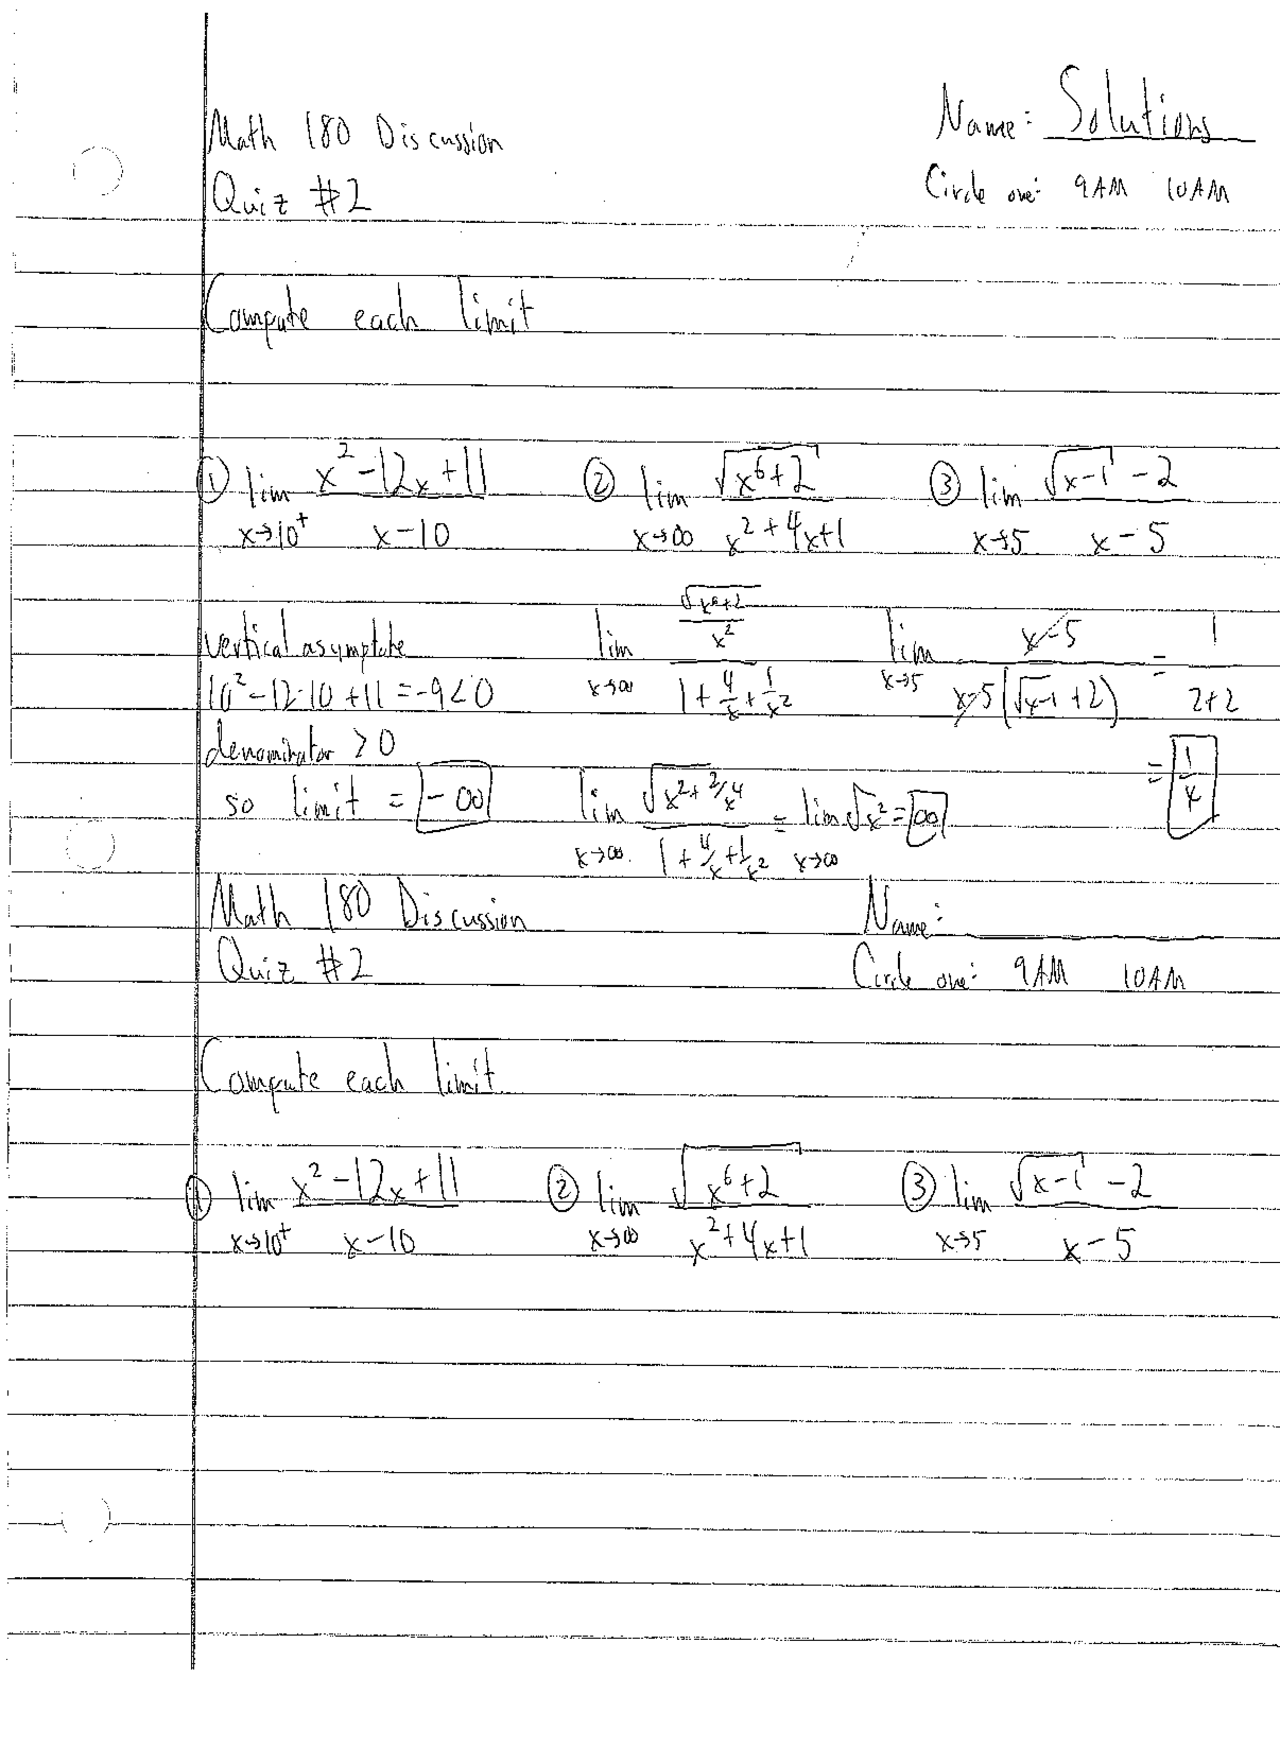 Math 180 Discussion
Name: Solutions
Quiz #2
Circle one: 9AM 10AM
Compute each limit
① lim x→10⁺ (x²-12x+11)/(x-10)
② lim x→∞ √(x⁶+2)/(x²+4x+1)
③ lim x→5 (√(x-1) -2)/(x-5)
vertical asymptote
10²-12·10+11=-9<0
denominator >0
so limit = -∞
lim x→∞ (√(x⁶+2)/x²)/(1+4/x+1/x²)
lim x→∞ √(x²+2/x⁴)/(1+4/x+1/x²) = lim x→∞ √x² = ∞
lim x→5 (x-5)/(x-5(√(x-1)+2)) = 1/(2+2)
= 1/4
Math 180 Discussion
Name:
Quiz #2
Circle one: 9AM 10AM
Compute each limit
① lim x→10⁺ (x²-12x+11)/(x-10)
② lim x→∞ √(x⁶+2)/(x²+4x+1)
③ lim x→5 (√(x-1) -2)/(x-5)